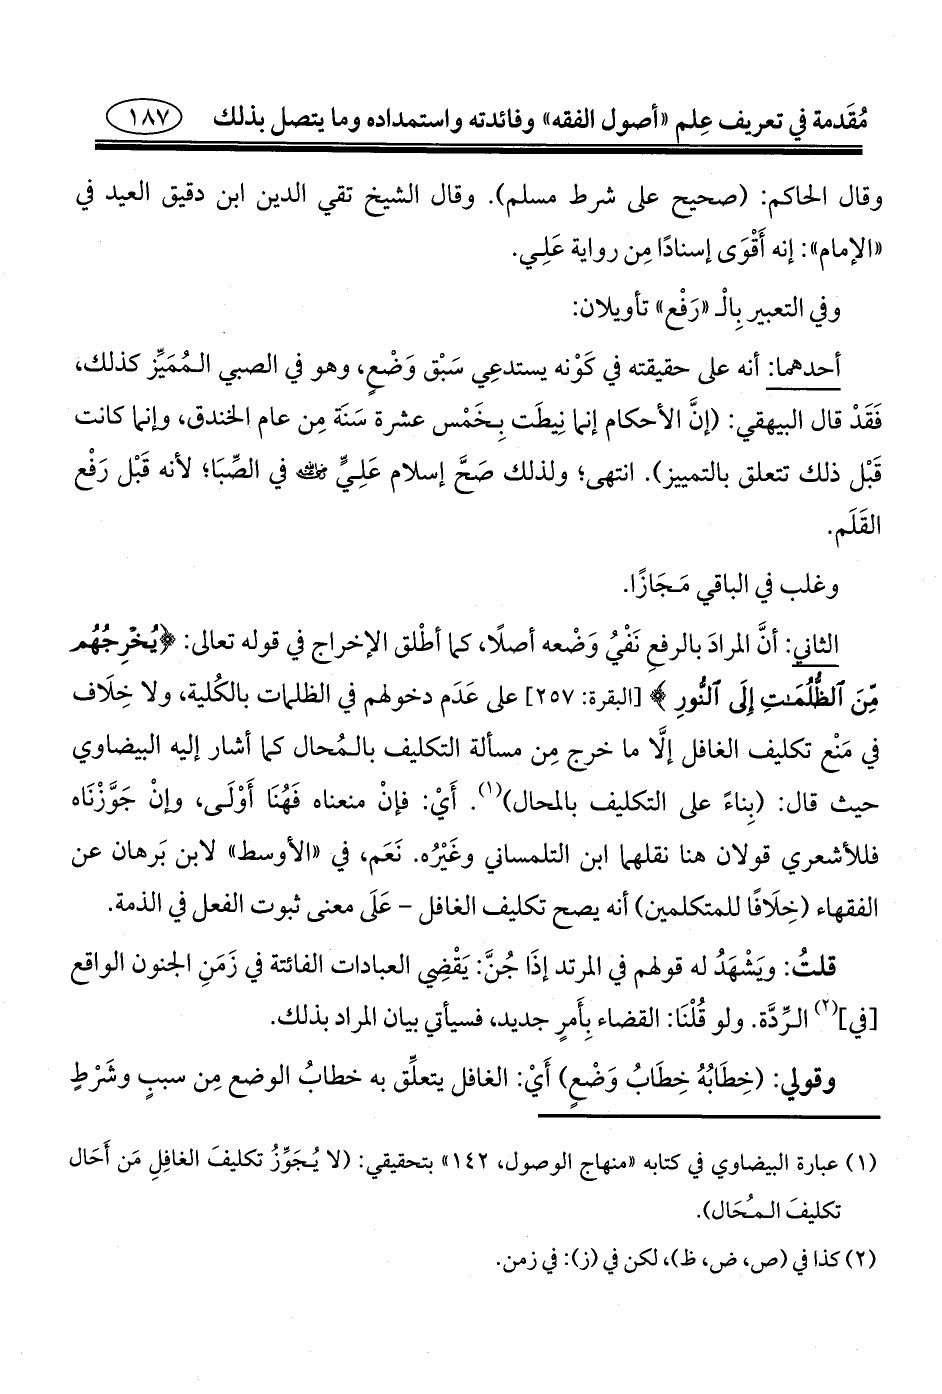 مُقَدمة في تعريف عِلم «أصول الفقه» وفائدته واستمداده وما يتصل بذلك ١٨٧
وقال الحاكم: (صحيح على شرط مسلم). وقال الشيخ تقي الدين ابن دقيق العيد في
«الإمام»: إنه أَقْوَى إسنادًا مِن رواية عَلِـي.
وفي التعبير بِالْـ «رَفْع» تأويلان:
أحدهما: أنه على حقيقته في كَوْنه يستدعِي سَبْق وَضْعٍ، وهو في الصبي الـمُمَيِّز كذلك،
فَقَدْ قال البيهقي: (إنَّ الأحكام إنما نِيطَت بِخَمْس عشرة سَنَة مِن عام الخندق، وإنما كانت
قَبْل ذلك تتعلق بالتمييز). انتهى؛ ولذلك صَحَّ إسلام عَلِيٍّ ﵁ في الصِّبَا؛ لأنه قَبْل رَفْع
القَلَم.
وغلب في الباقي مَـجَازًا.
الثاني: أنَّ المرادَ بالرفعِ نَفْيُ وَضْعه أصلًا، كما أطْلق الإخراج في قوله تعالى: ﴿يُخْرِجُهُم
مِّنَ ٱلظُّلُمَٰتِ إِلَى ٱلنُّورِ﴾ [البقرة: ٢٥٧] على عَدَم دخولهم في الظلمات بالكُلية، ولا خِلَاف
في مَنْع تكليف الغافل إلَّا ما خرج مِن مسألة التكليف بالـمُحال كما أشار إليه البيضاوي
حيث قال: (بِناءً على التكليف بالمحال)(١). أَيْ: فإنْ منعناه فَهُنَا أَوْلَـى، وإنْ جَوَّزْنَاه
فللأشعري قولان هنا نقلهما ابن التلمساني وغَيْرُه. نَعَم، في «الأوسط» لابن بَرهان عن
الفقهاء (خِلَافًا للمتكلمين) أنه يصح تكليف الغافل - عَلَى معنى ثبوت الفعل في الذمة.
قلتُ: ويَشْهَدُ له قولهم في المرتد إذَا جُنَّ: يَقْضِي العبادات الفائتة في زَمَنِ الجنون الواقع
[في](٢) الـرِّدَّة. ولو قُلْنَا: القضاء بِأَمرٍ جديد، فسيأتي بيان المراد بذلك.
وقولي: (خِطَابُهُ خِطَابُ وَضْعٍ) أَيْ: الغافل يتعلَّق به خطابُ الوضع مِن سببٍ وشَرْطٍ
(١) عبارة البيضاوي في كتابه «منهاج الوصول، ١٤٢» بتحقيقي: (لا يُـجَوِّزُ تكليفَ الغافِلِ مَن أَحَال
تكليفَ الـمُحَال).
(٢) كذا في (ص، ض، ظ)، لكن في (ز): في زمن.